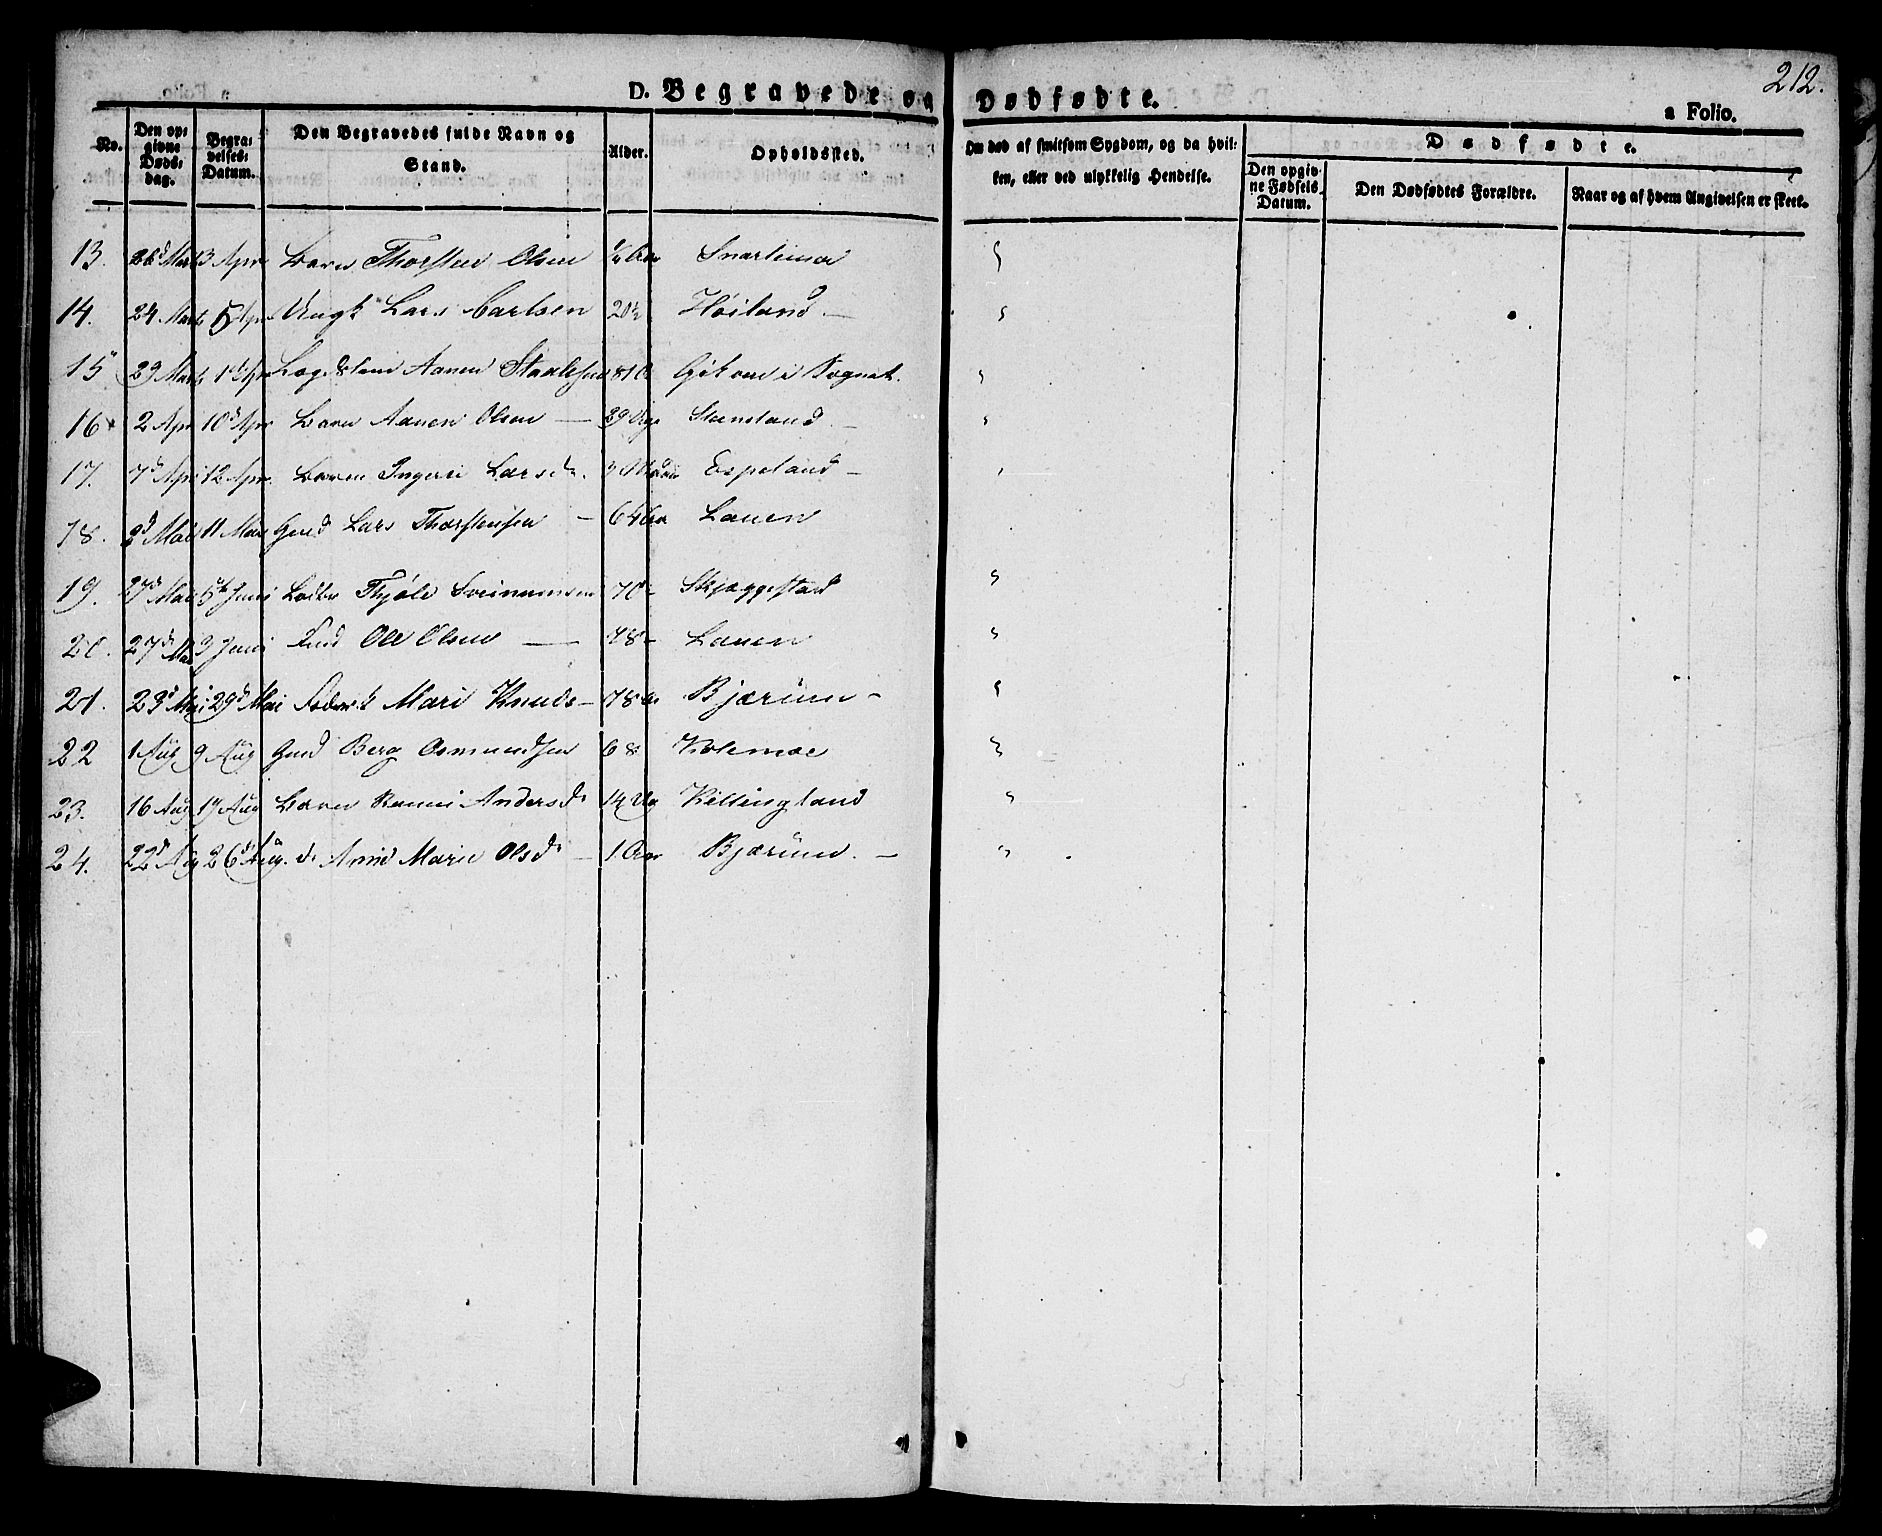 212.
D. Begravede og Dødfødte.
a Folio.
No. Den opgivne Dødsdag. Begravelses-Datum. Den Begravedes fulde Navn og Stand. Alder. Opholdssted. Om død af smitsom Sygdom, og da hvilken, eller ved ulykkelig Hendelse. Dødfødte.
Den opgivne Fødsels Datum. Den Dødfødtes Forældre. Naar og af hvem Angivelsen er skeet.
13. 26d Marts 3 Apr Barn Thorsten Olsen 1/4 Aar Snartemo "
14. 24 Marts 5 Apr Ungk Lars Carlsen 20½ Høiland – "
15 29 Marts 1 Apr Lægdslem Aanen Staalesen 81 i Sognet. "
16 2 Apr 10d Apr Barn Aanen Olsen — 29 Uger "
17. 7d Apr 12 Apr. Barn Ingeri Larsd. 3 Espeland – "
18. 2d Mai 11 Mai Gmd Lars Thorstensen – 64 Aar Lauen
19. 27d Mai 5te Juni Thjøle Sveinunsen 70 – Skjæggestad "
20. 27d Mai 3 Juni Ole Olsen — 78 – Lauen "
21. 23d Mai 29d Mai Mari Knuds – 78 Aar Bjærum – "
22 1 Aug 9 Aug Gmd Berg Osmundsen 68 "
23. 16 Aug 17 Aug Barn Andersd. Killingland "
24. 22d Aug 26d Aug. d. Marie Olsd. – 1 Aar Bjærum. – "